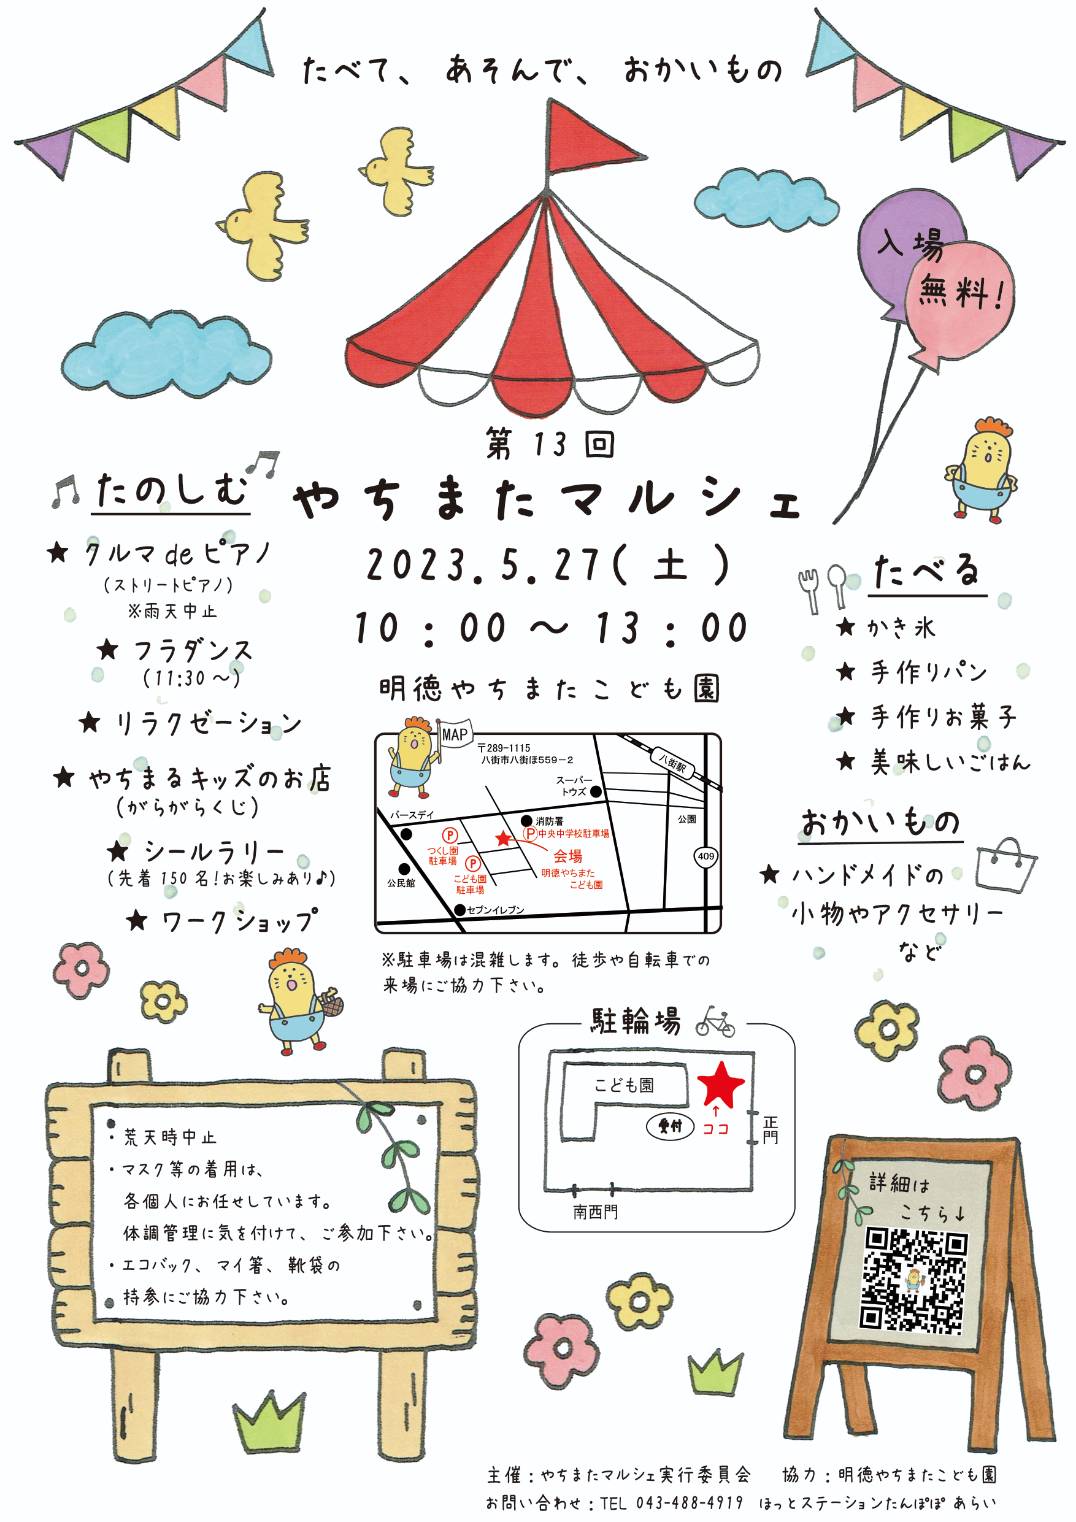 たべて、 あそんで、 おかいもの
入場
無料!
第 13 回
やちまたマルシェ
2023.5.27(土)
10:00～13:00
明徳やちまたこども園
たのしむ
★ クルマ de ピアノ
(ストリートピアノ)
※雨天中止
★ フラダンス
(11:30～)
★ リラクゼーション
★ やちまるキッズのお店
(がらがらくじ)
★ シールラリー
(先着150名!お楽しみあり♪)
★ ワークショップ
たべる
★ かき氷
★ 手作りパン
★ 手作りお菓子
★ 美味しいごはん
おかいもの
★ ハンドメイドの
小物やアクセサリー
など
MAP
〒289-1115
八街市八街ほ559-2
八街駅
スーパー
トウズ
バースデイ
消防署
公園
P
P中央中学校駐車場
つくし園
駐車場
P
会場
409
公民館
こども園
駐車場
明徳やちまた
こども園
セブンイレブン
※駐車場は混雑します。徒歩や自転車での
来場にご協力下さい。
駐輪場
こども園
受付
↑
ココ
正門
南西門
・荒天時中止
・マスク等の着用は、
各個人にお任せしています。
体調管理に気を付けて、ご参加下さい。
・エコバック、マイ箸、靴袋の
持参にご協力下さい。
詳細は
こちら↓
主催：やちまたマルシェ実行委員会 協力：明徳やちまたこども園
お問い合わせ：TEL 043-488-4919 ほっとステーションたんぽぽ あらい